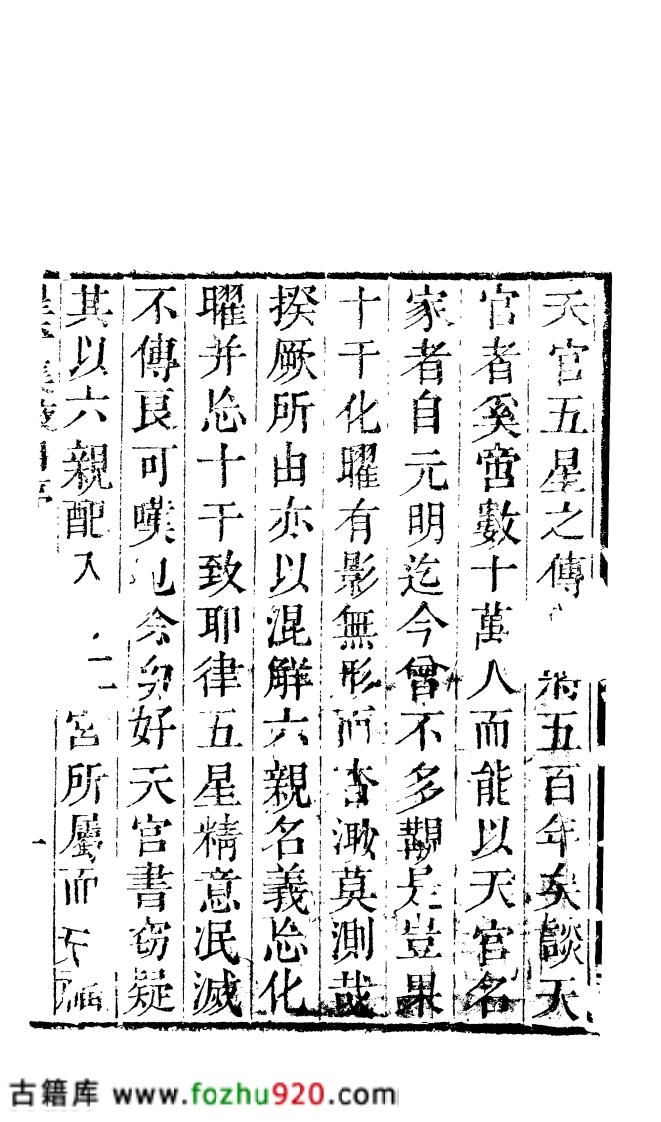 天官五星之傳五百年矣談天
官者奚啻數十萬人而能以天官名
家者自元明迄今曾不多覯是豈果
十干化曜有影無形而杳渺莫測哉
揆厥所由亦以混解六親名義忘化
曜并忘十干致耶律五星精意泯滅
不傳良可嘆也余幼好天官書竊疑
其以六親配入十二宮所屬而天
古籍库 www.fozhu920.com